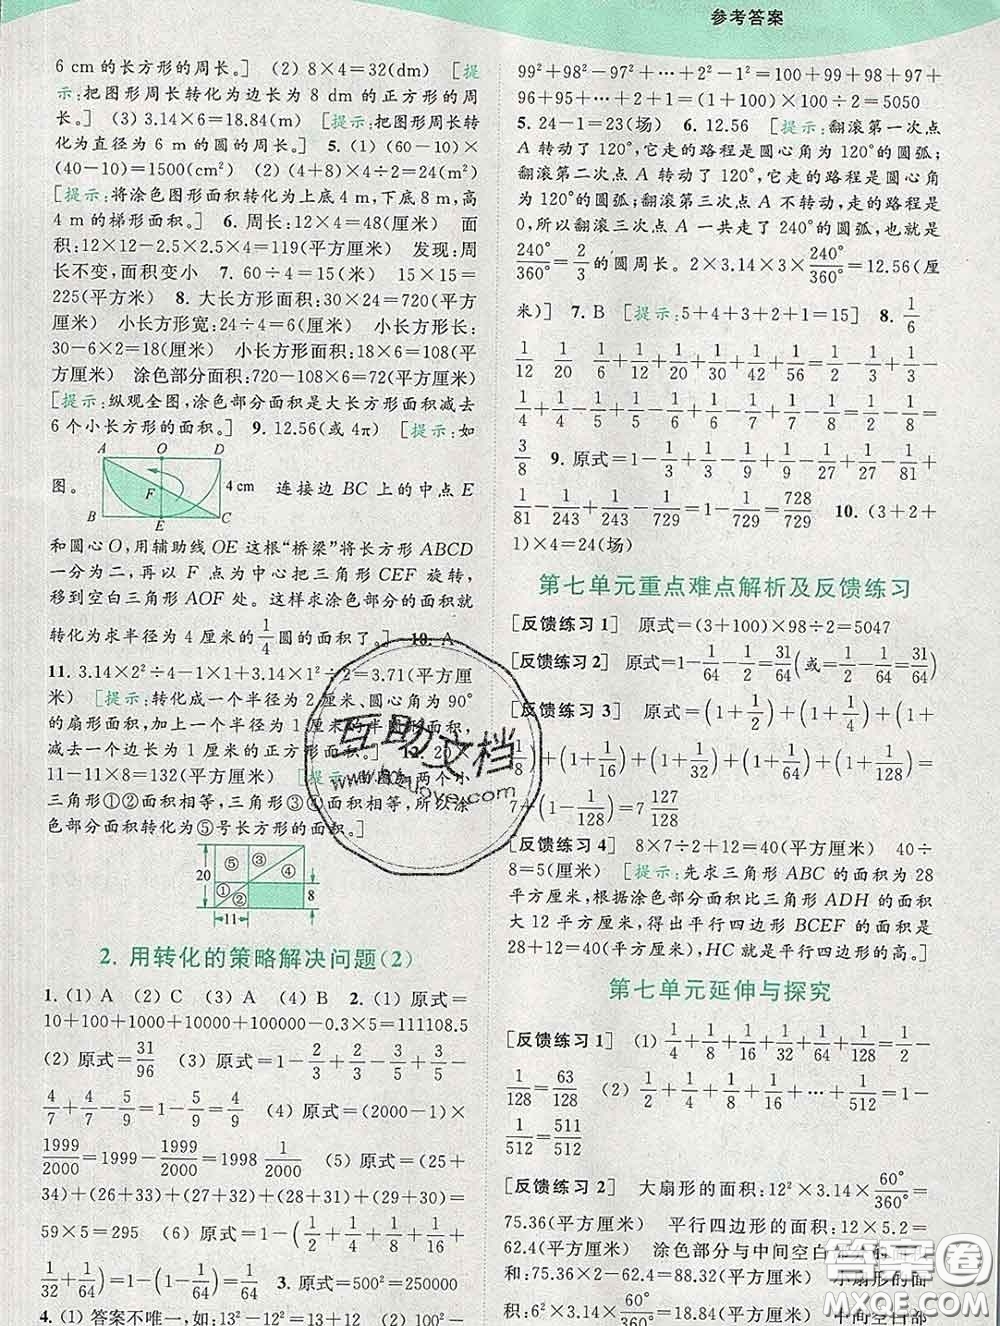 参考答案
6 cm的长方形的周长。] (2) 8×4=32(dm) [提
示:把图形周长转化为边长为 8 dm 的正方形的周
长。] (3) 3.14×6=18.84(m) [提示:把图形周长转
化为直径为 6 m 的圆的周长。] 5. (1) (60-10)×
(40-10)=1500(cm²) (2) (4+8)×4÷2=24(m²)
[提示:将涂色图形面积转化为上底 4 m,下底 8 m,高
4 m的梯形面积。] 6. 周长:12×4=48(厘米) 面
积:12×12-2.5×2.5×4=119(平方厘米) 发现:周
长不变,面积变小 7. 60÷4=15(米) 15×15=
225(平方米) 8. 大长方形面积:30×24=720(平方
厘米) 小长方形宽:24÷4=6(厘米) 小长方形长:
30-6×2=18(厘米) 小长方形面积:18×6=108(平
方厘米) 涂色部分面积:720-108×6=72(平方厘米)
[提示:纵观全图,涂色部分面积是大长方形面积减去
6个小长方形的面积。] 9. 12.56(或 4π) [提示:如
A O D
图。 F 4 cm 连接边 BC 上的中点 E
B E C
和圆心O,用辅助线 OE 这根“桥梁”将长方形 ABCD
一分为二,再以 F 点为中心把三角形 CEF 旋转,
移到空白三角形 AOF 处。这样求涂色部分的面积就
转化为求半径为 4 厘米的1/4圆的面积了。] 10. A
11. 3.14×2²÷4-1×1+3.14×1²÷2=3.71(平方厘
米) [提示:转化成一个半径为 2 厘米、圆心角为 90°
的扇形面积,加上一个半径为 1 厘米的半圆面积,
减去一个边长为 1 厘米的正方形面积。] 12. 20×
11-11×8=132(平方厘米) [提示:由图知两个小
三角形①②面积相等,三角形③④面积相等,所以涂
色部分面积转化为⑤号长方形的面积。]
⑤ ③ ④
20 ① ② 8
11
2. 用转化的策略解决问题(2)
1. (1) A (2) C (3) A (4) B 2. (1) 原式=
10+100+1000+10000+100000-0.3×5=111108.5
(2) 原式=31/96 (3) 原式=1-2/3+2/3-4/7+
4/7+4/9-5/9=1-5/9=4/9 (4) 原式=(2000-1)×
1999/2000=1999-1999/2000=1998 1/2000 (5) 原式=(25+
34)+(26+33)+(27+32)+(28+31)+(29+30)=
59×5=295 (6) 原式=1-(1/2+1/4+1/8+1/16+
1/32+1/64)=1-(1-1/64)=1/64 3. 原式=500²=250000
4. (1) 答案不唯一,如:13²-12²=13+12 (2) 100²-
99²+98²-97²+…+2²-1²=100+99+98+97+
96+95+…+2+1=(1+100)×100÷2=5050
5. 24-1=23(场) 6. 12.56 [提示:翻滚第一次点
A 转动了 120°,它走的路程是圆心角为120°的圆弧;
翻滚第二次点 A 转动了 120°,它走的路程是圆心角
为 120°的圆弧;翻滚第三次点 A 不转动,走的路程是
0,所以翻滚三次点 A 一共走了 240°的圆弧,也就是
240°/360°=2/3的圆周长。2×3.14×3×240°/360°=12.56(厘
米)] 7. B [提示:5+4+3+2+1=15] 8. 1/6
1/12 1/20 1/30 1/42 1/2+1/6+1/12+1/20+1/30+1/42+1/56=
1/1-1/2+1/2-1/3+…

3/8 9. 原式=1-1/3+1/3-1/9+1/9-1/27+1/27-1/81+
1/81-1/243+1/243-1/729=1-1/729=728/729 10. (3+2+
1)×4=24(场)
第七单元重点难点解析及反馈练习
[反馈练习1] 原式=(3+100)×98÷2=5047
[反馈练习2] 原式=1-1/64-1/2=31/64(或=1/2-1/64=31/64)
[反馈练习 3] 原式=(1+1/2)+(1+1/4)+(1+
1/8)+(1+1/16)+(1+1/32)+(1+1/64)+(1+1/128)=
7+(1-1/128)=7 127/128
[反馈练习4] 8×7÷2+12=40(平方厘米) 40÷
8=5(厘米) [提示:先求三角形 ABC 的面积是 28
平方厘米,根据涂色部分面积比三角形 ADH 的面积
大 12 平方厘米,得出平行四边形 BCEF 的面积是
28+12=40(平方厘米),HC 就是平行四边形的高。]
第七单元延伸与探究
[反馈练习1] (1) 1/4+1/8+1/16+1/32+1/64+1/128=1/2-
1/128=63/128 (2) 1/2+1/4+1/8+1/16+…+1/512=1-
1/512=511/512
[反馈练习 2] 大扇形的面积:12²×3.14×60°/360°=
75.36(平方厘米) 平行四边形的面积:12×5.2=
62.4(平方厘米) 涂色部分与中间空白
和:75.36+62.4=88.32(平方厘米) 小扇形的面
积:6²×3.14×60°/360°=18.84(平方厘米) 中间空白部
互助文档
www.hzuoye.com
答案圈
MXQE.COM